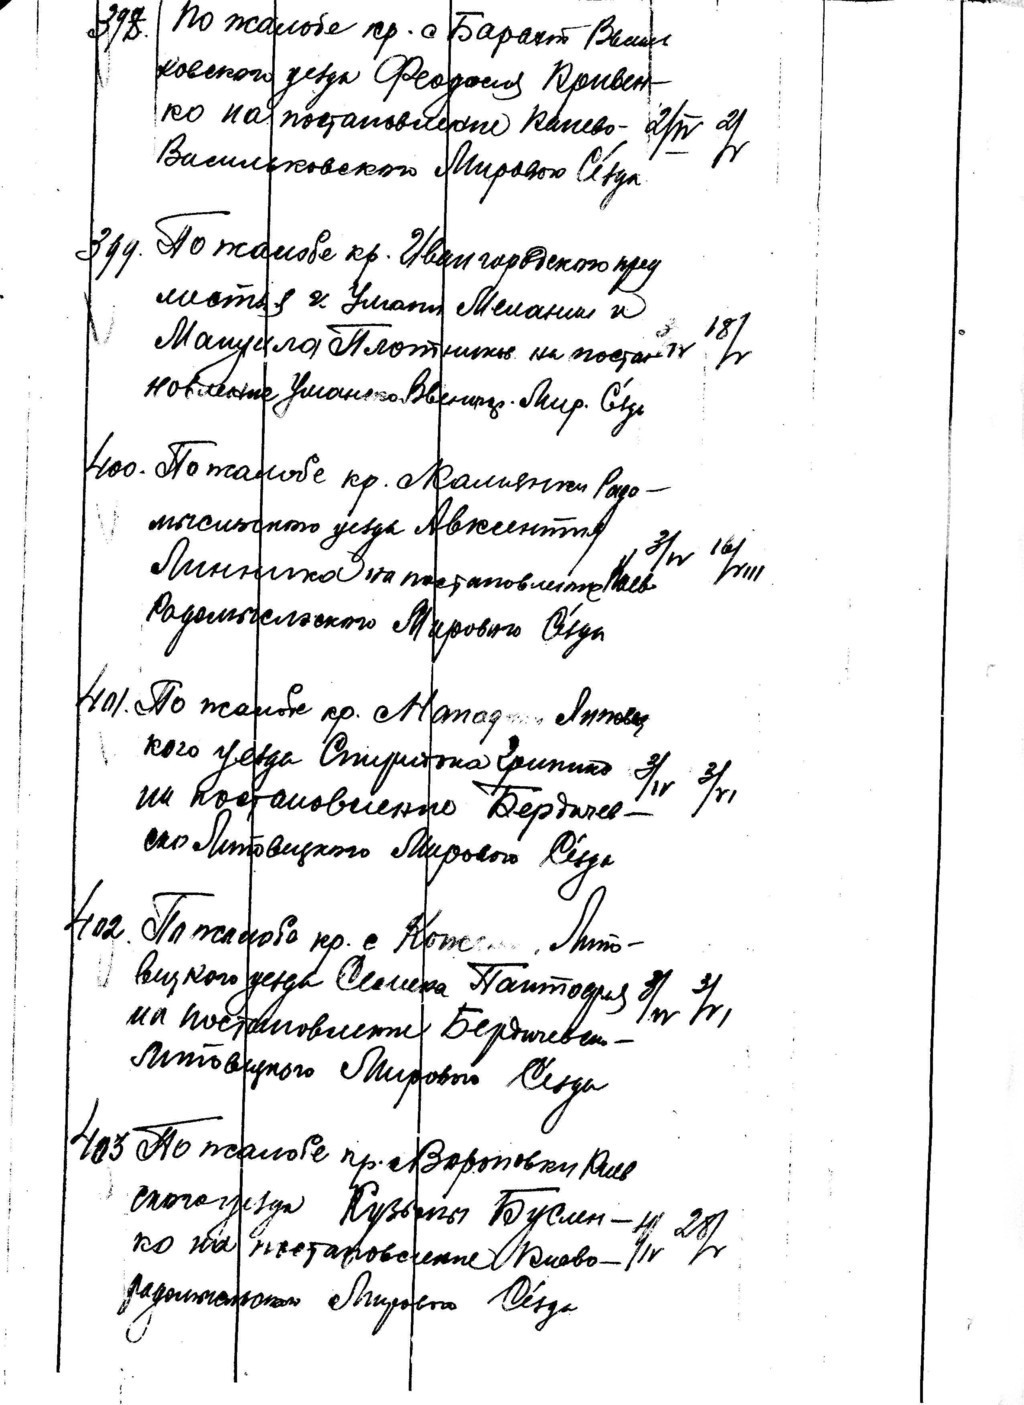 398. По жалобе кр. с Барахт Василь
ковского уезда Феодосия Кривен-
ко на постановление Киево- 2/IV 2/V
Васильковского Мирового Съезда
399. По жалобе кр. Ивангородского пред
местья г. Умани Мелании и
Мануила Плотницы на поста- /IV 18/V
новление Уманско Звенигор. Мир. Съезда
400. По жалобе кр. с Малинки Радо-
мысльского уезда Авксентия
Линника на постановление Киев 3/IV 16/VIII
Радомысльского Мирового Съезда
401. По жалобе кр. с Липовец
кого уезда Спиридона 3/IV 3/VI
на постановление Бердичев-
ско Липовецкого Мирового Съезда
402. По жалобе кр. с Липо-
вецкого уезда Семена 3/IV 3/VI
на постановление Бердичевско-
Липовецкого Мирового Съезда
403 По жалобе кр. с Вороновки Киев
ского уезда Кузьмы Буслен- 4/IV 28/V
ко на постановление Киево-
радомысльского Мирового Съезда